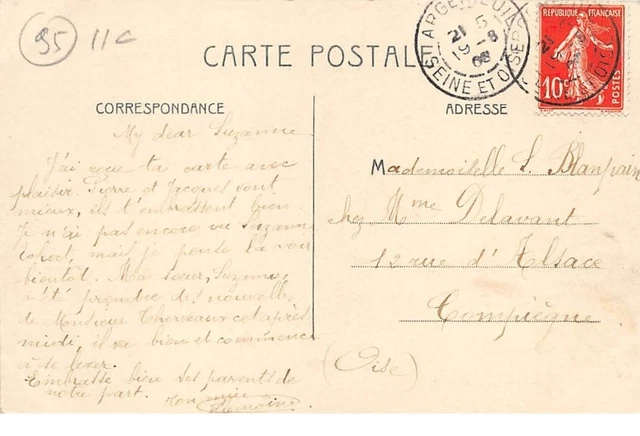 95 11c
CARTE POSTALE
ARGENTEUIL
21 5
9 -8
08
SEINE ET OISE
REPUBLIQUE FRANÇAISE
10
POSTES
CORRESPONDANCE
My dear Suzanne
J'ai reçu ta carte avec
plaisir. Pierre et Jacques sont
mieux, ils t'embrassent bien.
Je n'ai pas encore vu Suzanne
mais je pense la voir
bientôt. Ma sœur, Suzanne,
a été prendre des nouvelles
de Monsieur cet après
midi, il va bien et commence
à se lever.
Embrasse bien tes parents de
notre part. Ton amie
ADRESSE
Mademoiselle S. Blanpain
chez Mme Delavant
12 rue d'Alsace
Compiègne
(Oise)